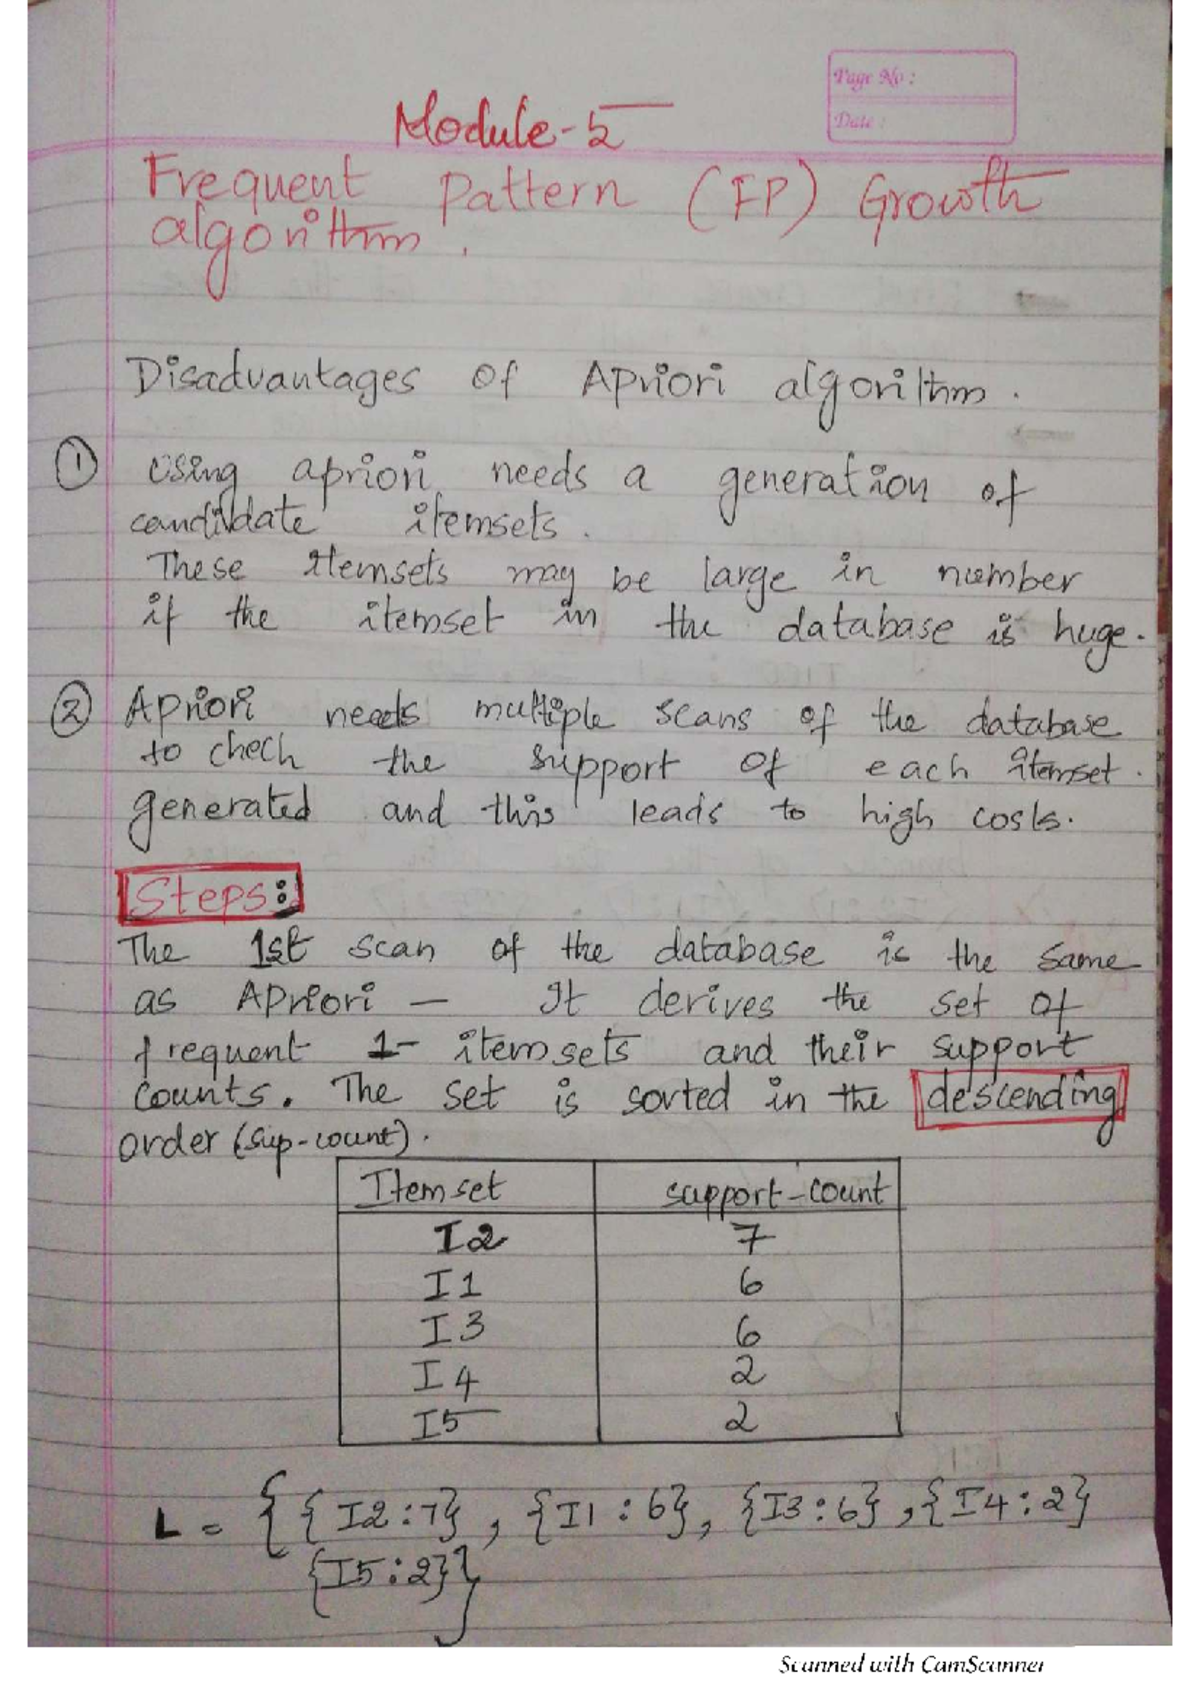 Page No :
Date :
Module-5
Frequent Pattern (FP) Growth
algorithm.
Disadvantages of Apriori algorithm.
① Using apriori needs a generation of
candidate itemsets.
These itemsets may be large in number
if the itemset in the database is huge.
② Apriori needs multiple scans of the database
to chech the support of each itemset.
generated and this leads to high costs.
Steps:
The 1st scan of the database is the same
as Apriori – It derives the set of
frequent 1- itemsets and their support
counts. The set is sorted in the descending
order (sup-count).
Itemset support-count
I2 7
I1 6
I3 6
I4 2
I5 2
L = {{I2:7}, {I1:6}, {I3:6}, {I4:2}
{I5:2}}
Scanned with CamScanner